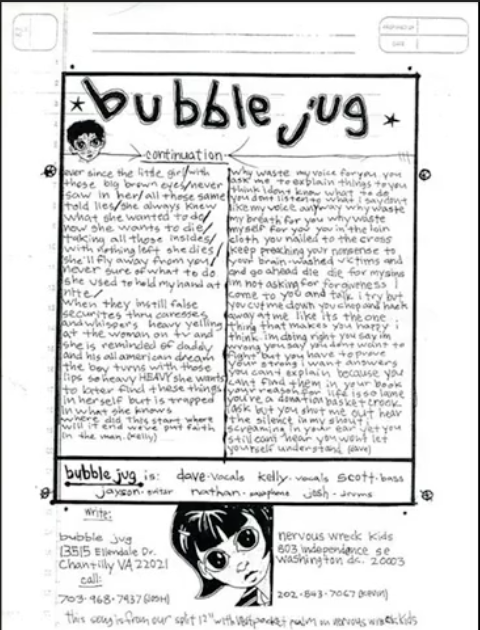 bubble jug
continuation
ever since the little girl/with
those big brown eyes/never
saw in her/all those same
told lies/she always knew
what she wanted to do/
now she wants to die/
taking all those insides/
with nothing left she dies/
she'll fly away from you/
never sure of what to do
she used to hold my hand at
nite/
when they instill false
securites thru caresses
and whispers heavy yelling
at the woman on tv and
she is reminded of daddy
and his all american dream
the boy turns with those
lips so heavy HEAVY she wants
to later find these things
in herself but is trapped
in what she knows
where did this start where
will it end we've put faith
in the man. (kelly)
why waste my voice for you. you
ask me to explain things to you
think i dont know what to do
you dont listen to what i say dont
like my voice anyway why waste
my breath for you why waste
myself for you you in the loin
cloth you nailed to the cross
keep preaching your nonsense to
your brain-washed victims and
and go ahead die die for my sins
im not asking for forgiveness i
come to you and talk i try but
you cut me down you chop and hack
away at me like its the one
thing that makes you happy i
think im doing right you say im
wrong you say you dont want to
fight but you have to prove
your strong i want answers
you cant explain because you
cant find them in your book
your reason for life is so lame
you're a donation basket crook
i ask but you shut me out hear
the silence in my shout i
screaming in your ear yet you
still cant hear you wont let
yourself understand (dave)
bubble jug is: dave·vocals kelly·vocals scott·bass
jayson·guitar nathan·saxophone josh·drums
write:
bubble jug
13515 Ellendale Dr.
Chantilly VA 22021
call:
703·968·7937 (JOSH)
nervous wreck kids
803 independence se
washington dc. 20003
202·543·7067 (KEVIN)
this song is from our split 12" with vest pocket psalm on nervous wreck kids